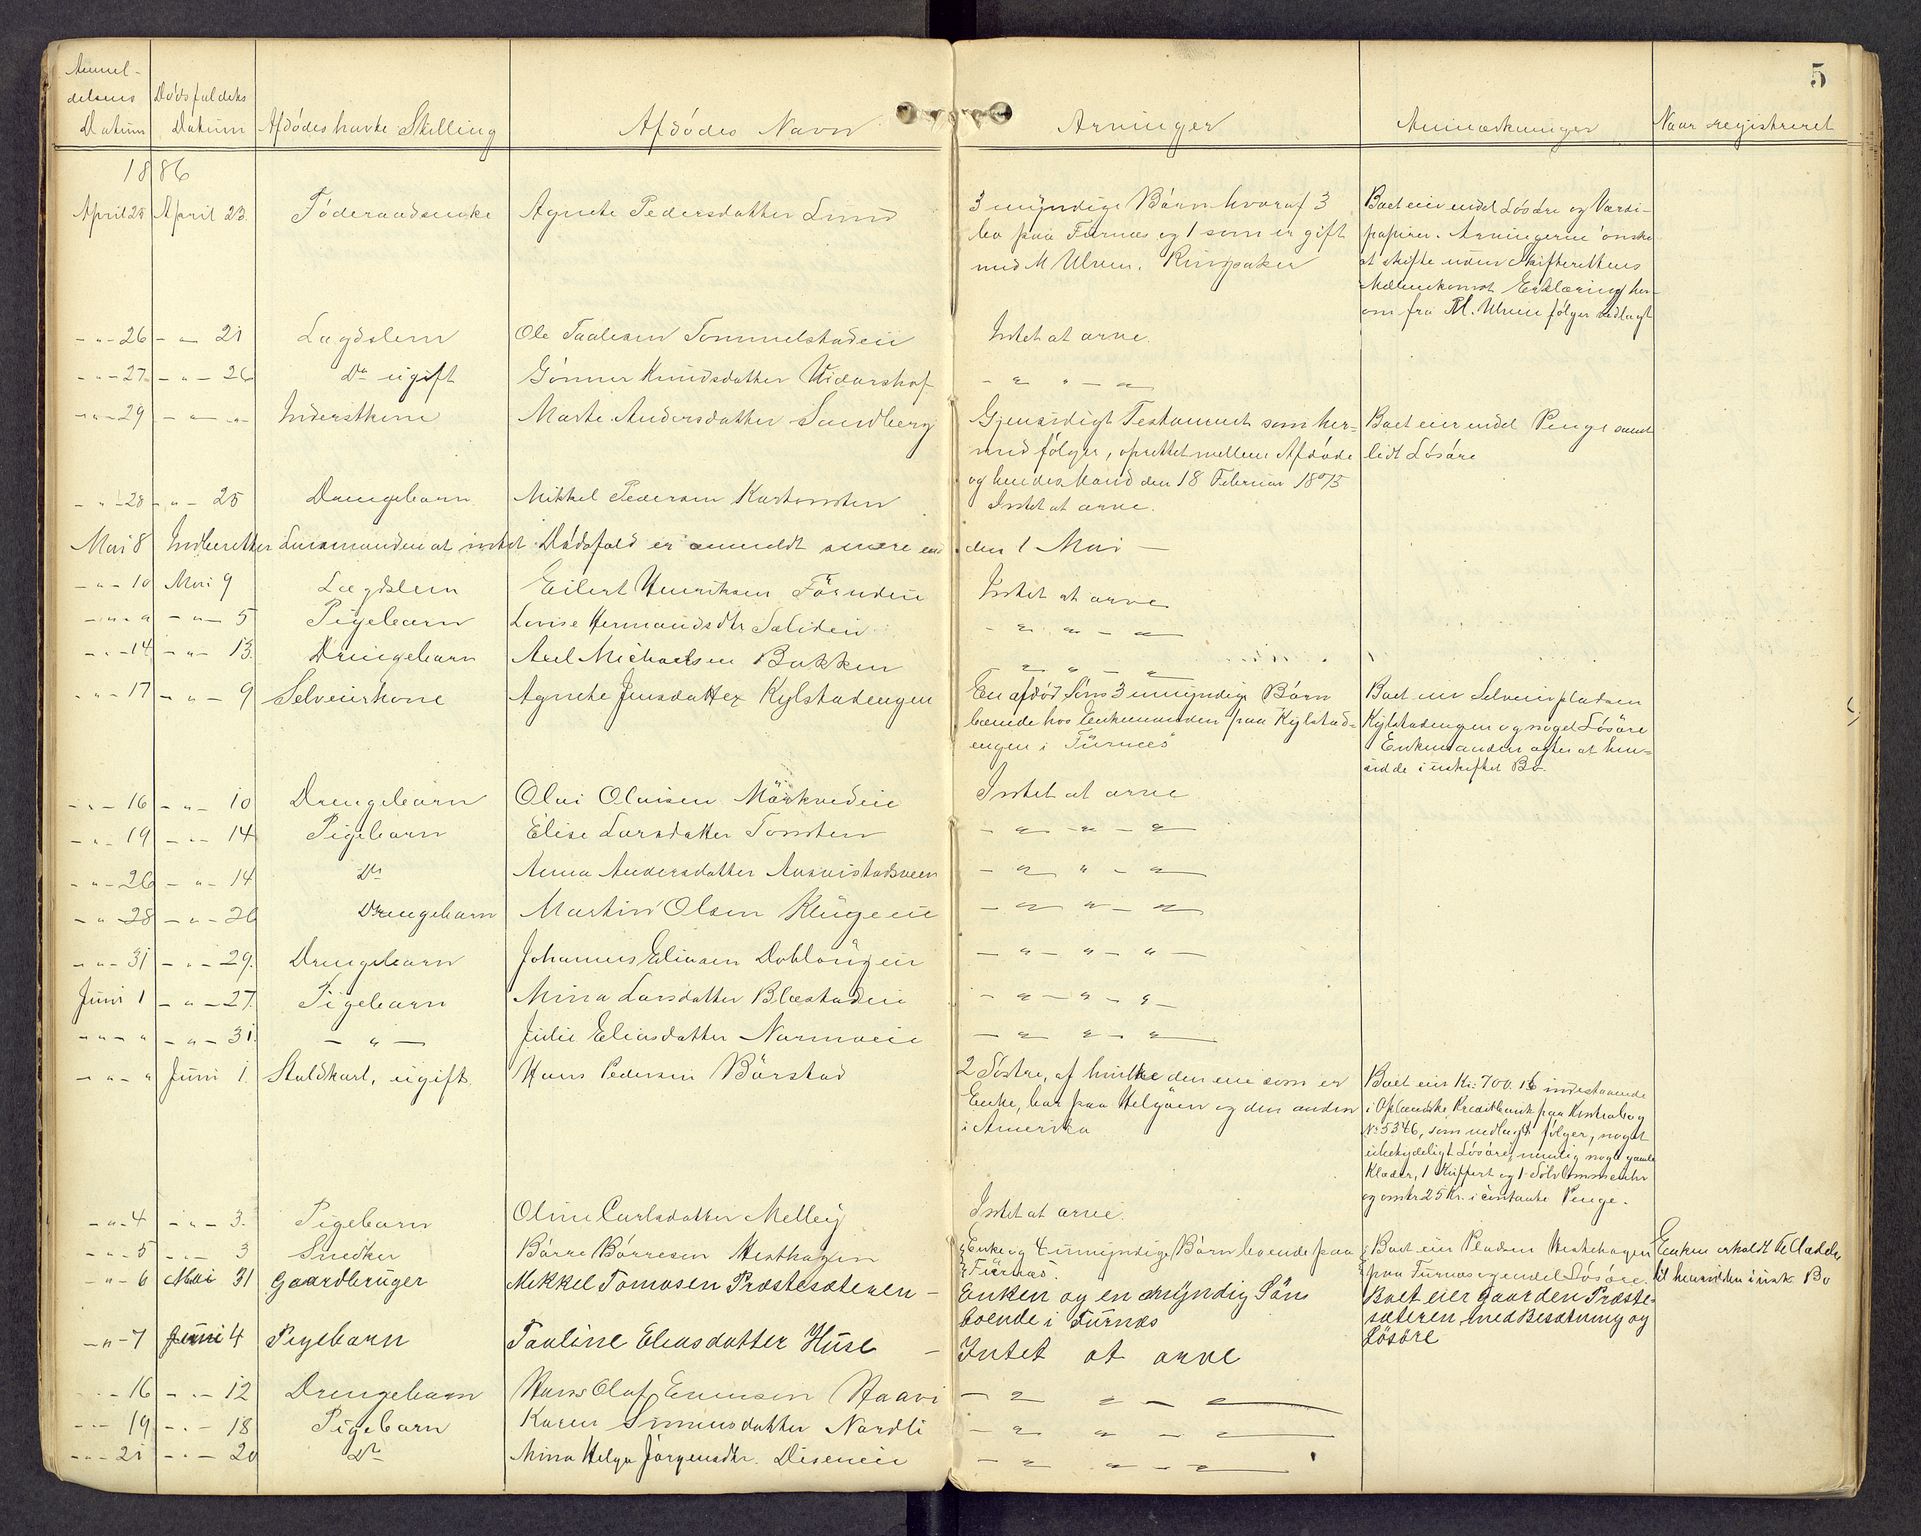 5
Anmel-
delsens
Datum
Dødsfaldets
Datum
Afdødes havte Stilling
Afdødes Navn
Arvinger
Anmærkninger
Naar registreret
1886
April 25 April 23. Føderaadsenke Agnete Pedersdatter Lund
3 myndige Børn hvoraf 3
bo paa Furnæs og 1 som er gift
med M Ulven. Ringsaker
Boet eier endel Løsøre og Værdi-
papirer. Arvingerne ønske
at skifte uden Skifterettens
Mellemkomst Erklæring her-
om fra M. Ulven følger vedlagt
- " - 26 - " - 21 Lægdslem Ole Paulsen Tommelstadeie Intet at arve.
- " - 27 - " - 26 Do ugift Gønner Knudsdatter Vidarshof - " " - "
- " - 29 - " - " Inderstkone Marte Andersdatter Sandberg
Gjensidigt Testament som her-
med følger, oprettet mellem Afdøde
og hendes Mand den 18 Februar 1875
Boet eier endel Penge samt
lidt Løsøre
- " - 28 - " - 25 Drengebarn Mikkel Pedersen Karlonsten Intet at arve.
Mai 8 Indberetter Lensmanden at intet Dødsfald er anmeldt senere end den 1 Mai -
- " - 10 Mai 9 Lægdslem Eilert Henriksen Førudeie Intet at arve
- " - " - " - 5 Pigebarn Lovise Hermandsdtr Salideie - " " - "
- " - 14 - " - 13. Drengebarn Axel Michaelsen Bakken " " - "
- " - 17 - " - 9 Selveierkone Agnete Jensdatter Kylstadengen
En afdød Søns 3 umyndige Børn
boende hos Enkemanden paa Kylstad-
engen i Furnæs
Boet eier Selveierpladsen
Kylstadengen og noget Løsøre
Enkemanden agter at hen-
sidde i uskiftet Bo.
- " - 16 - " - 10 Drengebarn Olai Olaisen Mørkvedeie Intet at arve
- " - 19 - " - 14 Pigebarn Elise Larsdatter Tomten - " - " - "
- " - 26 - " - 14 Do Anna Andersdatter - " " - "
- " - 28 - " - 26 Drengebarn Martin Olsen Klugeeie - " " - "
- " - 31 - " - 29. Drengebarn Johannes Eliasen Doblougeie - " - " - " -
Juni 1 - " - 27. Pigebarn Mina Larsdatter Blæstadeie - " - " - " -
- " - " - " - 31. - " - Julie Eliasdatter Narmoeie - " " - "
- " - " Juni 1. Staldkarl, ugift. Hans Pedersen Børstad
2 Søstre, af hvilke den ene som er
Enke, bor paa Helgøen og den anden
i Amerika
Boet eier Kr: 700.16 indestaaende
i Oplandske Kreditbank paa Kontrabog
No 5346, som vedlagt følger, noget
ubetydeligt Løsøre, nemlig nogle gamle
Klæder, 1 Kuffert og 1 Sølvlommeuhr
og omtr 25 Kr. i contante Penge.
- " - 4 - " - 3. Pigebarn Oline Carlsdatter Melbey Intet at arve.
- " - 5 - " - 3 Snedker Børre Børresen Hesthagen
Enke og 4 umyndige Børn boende paa
Furnæs.
Boet eier Pladsen Hestehagen
paa Furnæs og endel Løsøre.
Enken erholdt Tilladelse
til hensidden i usk. Bo
- " - 6 Mai 31 Gaardbruger Mekkel Tomasen Præstesæteren -
Enken og en myndig Søn
boende i Furnæs
Boet eier Gaarden Præste-
sæteren med Besætning og
Løsøre
- " - 7 Juni 4 Pigebarn Pauline Eleasdatter Huse - Intet at arve
- " - 16 - " - 12 Drengebarn Hans Olaf Evensen Haavi - " " - "
- " - 19 - " - 18 Pigebarn Karen Simensdatter Nordli - " " - "
- " - 21 - " - 20 Do Mina Helga Jørgensdtr. Diseneie - " " - "